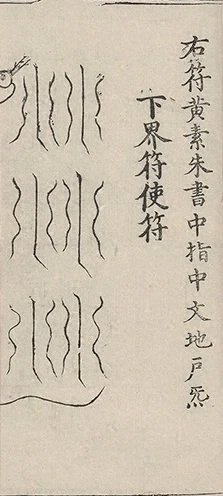 右符黄素朱書中指中文地戶炁
下界符使符